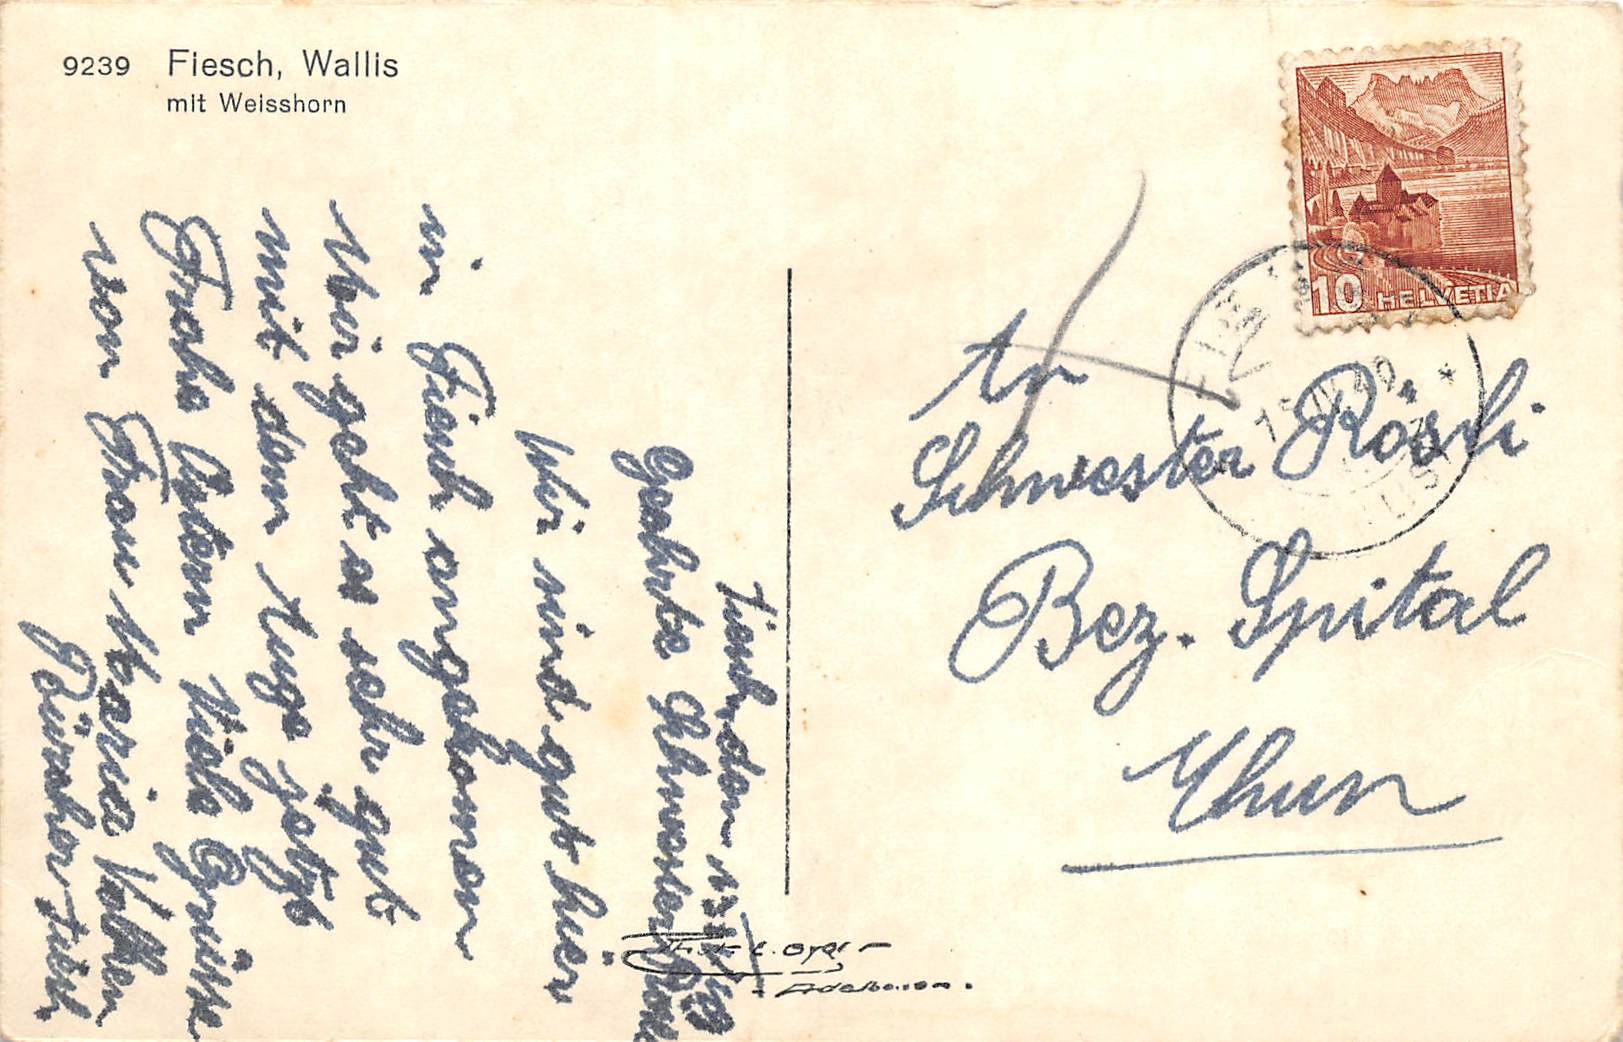 9239 Fiesch, Wallis
mit Weisshorn
Fiesch, den
Geehrte Schwester
Wir sind gut hier
in Fiesch angekomen
Mir geht es sehr gut
mit dem Auge
Frohe Ostern Viele Grüsse
von Frau Maria Volken
Fiesch
10 HELVETIA
An
Schwester Rösli
Bez. Spital
Thun
Adelboden.